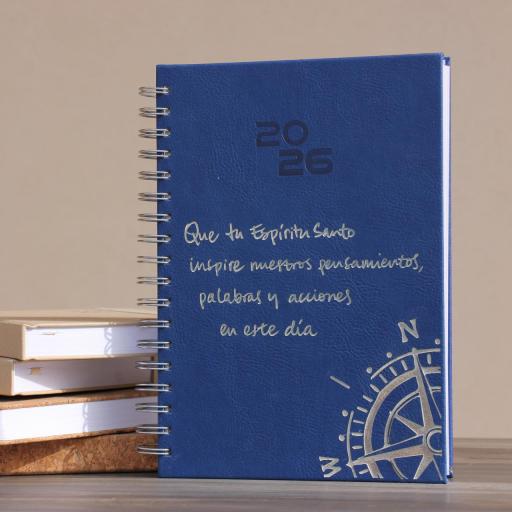 20
26
Que tu Espíritu Santo
inspire nuestros pensamientos,
palabras y acciones
en este día
N
W